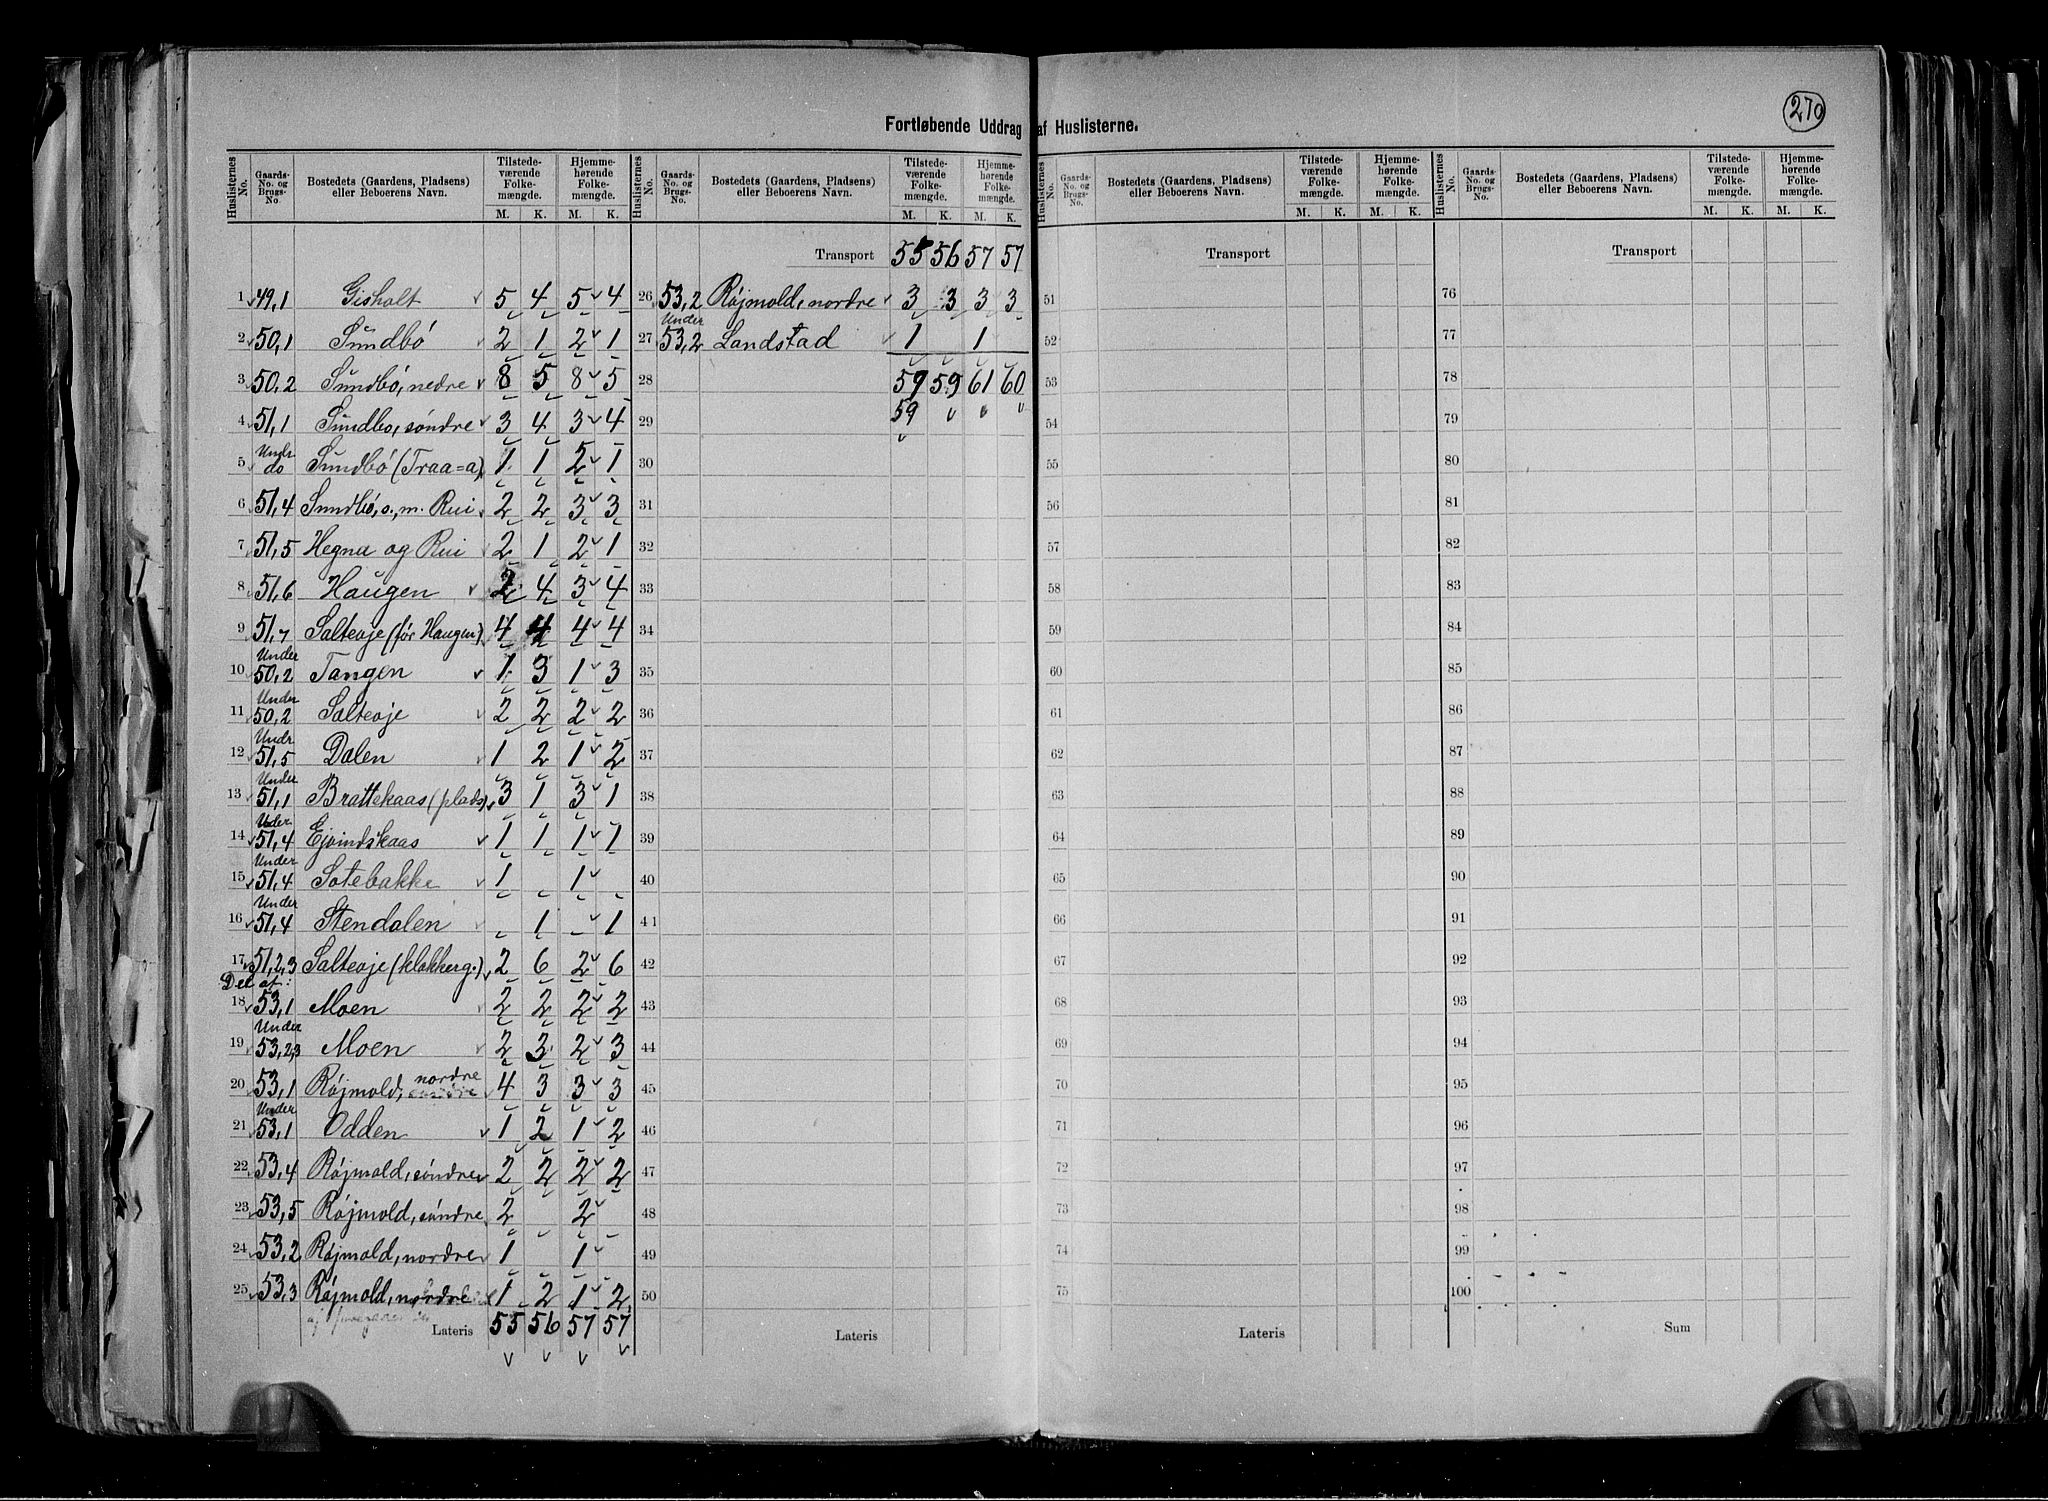 270
Fortløbende Uddrag af Huslisterne.
Huslisternes No. Gaards-No. og Brugs-No. Bostedets (Gaardens, Pladsens) eller Beboerens Navn. Tilstedeværende Folkemængde. M. K. Hjemmehørende Folkemængde. M. K.
1 49,1 Gisholt 5 4 5 4
2 50,1 Sundbø 2 1 2 1
3 50,2 Sundbø, nedre 8 5 8 5
4 51,1 Sundbø, søndre 3 4 3 4
5 Undr do Sundbø (Traa=a) 1 1 2 1
6 51,4 Sundbø, s., m. Rui 2 2 3 3
7 51,5 Hegna og Rui 2 1 2 1
8 51,6 Haugen 2 4 3 4
9 51,7 Salteøje (før Haugen) 4 4 4 4
10 Under 50,2 Tangen 1 3 1 3
11 Under 50,2 Salteøje 2 2 2 2
12 Undr. 51,5 Dalen 1 2 1 2
13 Under 51,1 Brattekaas (plads) 3 1 3 1
14 Under 51,4 Ejvindskaas 1 1 1 1
15 Under 51,4 Sotebakke 1 1
16 Under 51,4 Stendalen - 1 - 1
17 51,2,3 Salteøje (klokkerg.) 2 6 2 6
18 Del af: 53,1 Moen 2 2 2 2
19 Under 53,2,3 Moen 2 3 2 3
20 53,1 Røjmold, nordre 4 3 3 3
21 Under 53,1 Odden 1 2 1 2
22 53,4 Røjmold, søndre 2 2 2 2
23 53,5 Røjmold, søndre 2 2
24 53,2 Røjmold, nordre 1 1
25 53,3 Røjmold, nordre 1 2 1 2
Lateris 55 56 57 57
Huslisternes No. Gaards-No. og Brugs-No. Bostedets (Gaardens, Pladsens) eller Beboerens Navn. Tilstedeværende Folkemængde. M. K. Hjemmehørende Folkemængde. M. K.
Transport 55 56 57 57
26 53,2 Røjmold, nordre 3 3 3 3
27 Under 53,2 Landstad 1 1
28 59 59 61 60
29 59
30
31
32
33
34
35
36
37
38
39
40
41
42
43
44
45
46
47
48
49
50
Lateris
Huslisternes No. Gaards-No. og Brugs-No. Bostedets (Gaardens, Pladsens) eller Beboerens Navn. Tilstedeværende Folkemængde. M. K. Hjemmehørende Folkemængde. M. K.
Transport
51
52
53
54
55
56
57
58
59
60
61
62
63
64
65
66
67
68
69
70
71
72
73
74
75
Lateris
Huslisternes No. Gaards-No. og Brugs-No. Bostedets (Gaardens, Pladsens) eller Beboerens Navn. Tilstedeværende Folkemængde. M. K. Hjemmehørende Folkemængde. M. K.
Transport
76
77
78
79
80
81
82
83
84
85
86
87
88
89
90
91
92
93
94
95
96
97
98
99
100
Sum